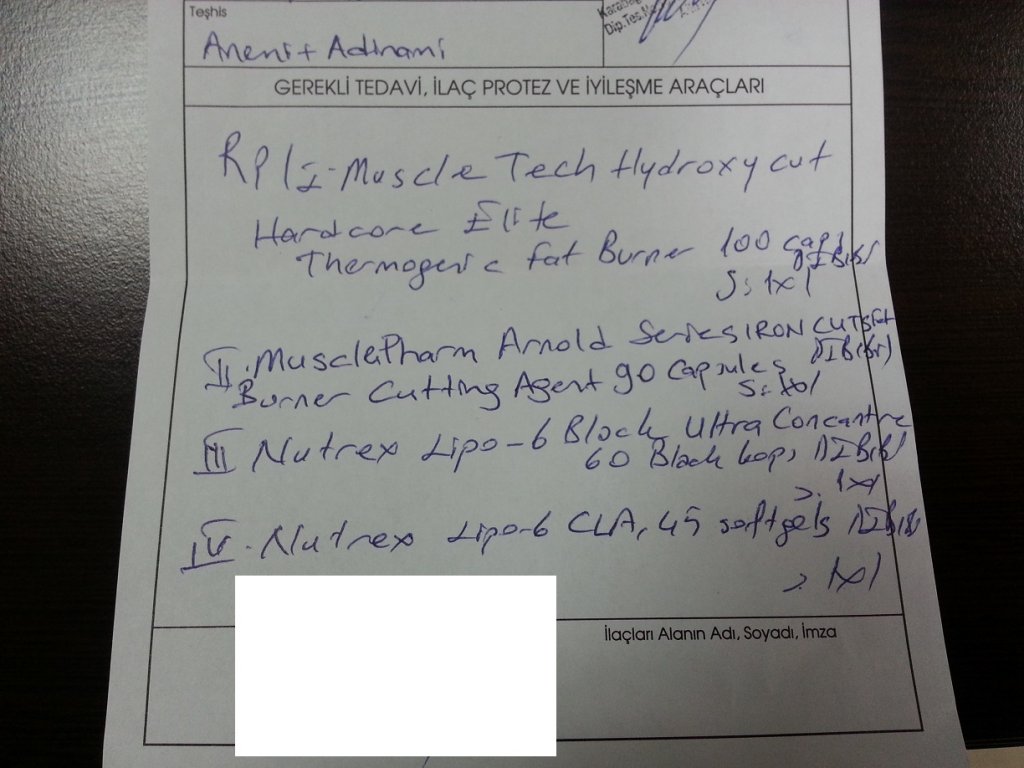 Teşhis
Anemi + Adinami
Dip.Tes.No
GEREKLİ TEDAVİ, İLAÇ PROTEZ VE İYİLEŞME ARAÇLARI
Rp/ I-Muscle Tech Hydroxycut
Hardcore Elite
Thermogenic fat Burner 100 caps
S: 1x1
II. MusclePharm Arnold Series IRON CUTS fat
Burner Cutting Agent 90 Capsules
S: 1x1
III Nutrex Lipo-6 Black Ultra Concantre
60 Black
1x1
IV. Nutrex Lipo-6 CLA, 45 softgels
1x1
İlaçları Alanın Adı, Soyadı, İmza